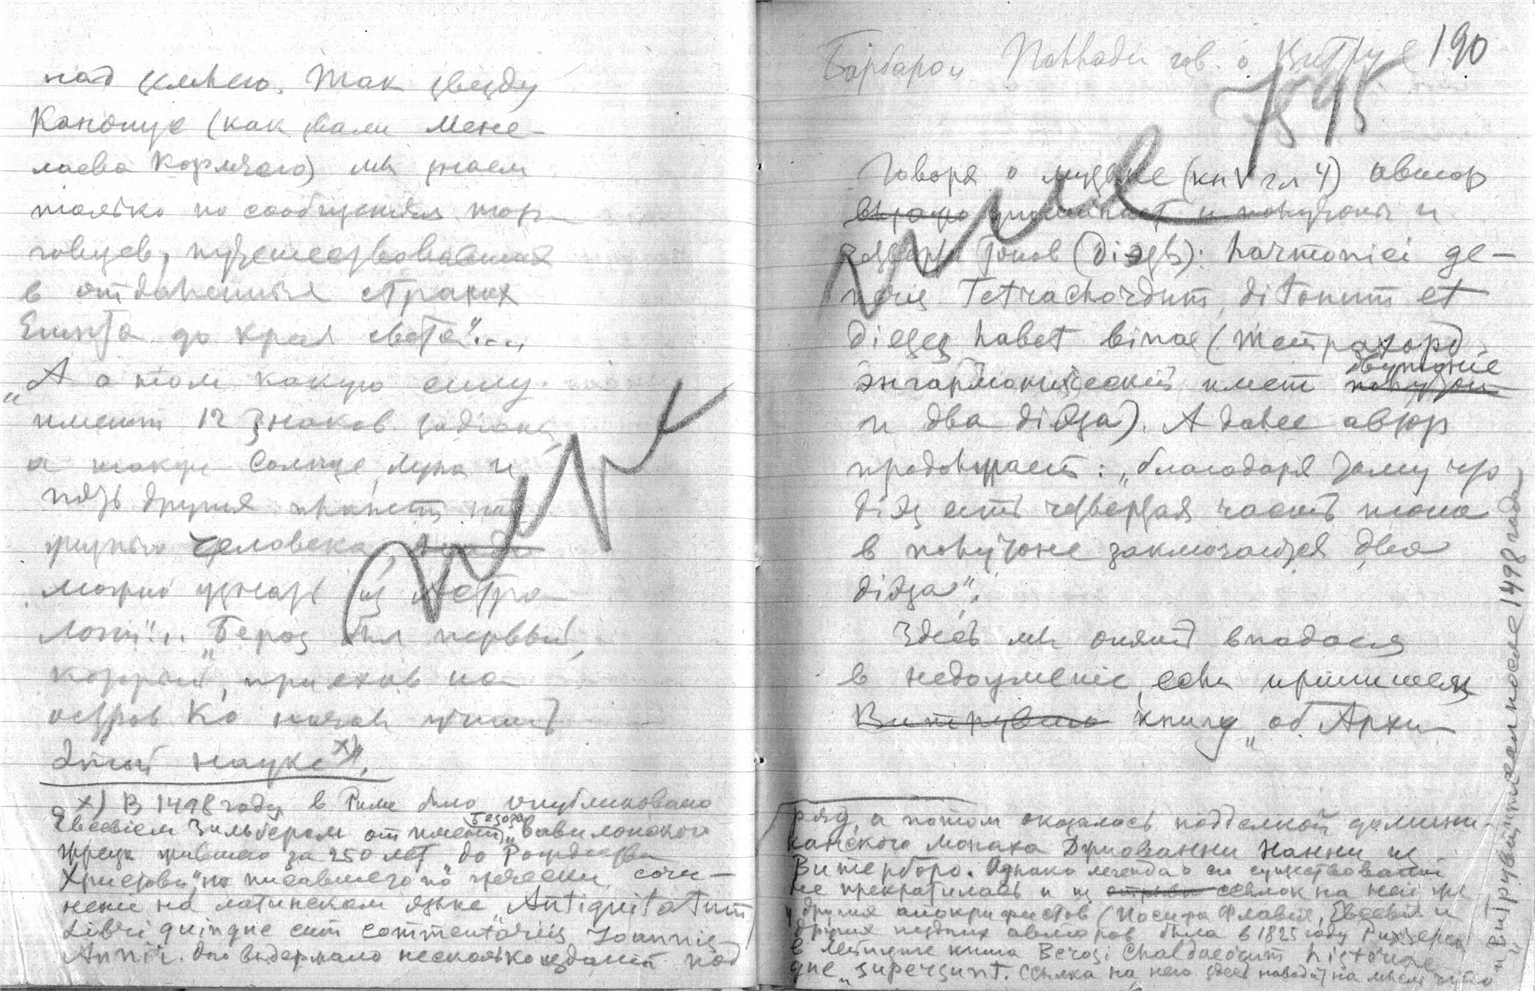 над землею. Так звезду
Канопус (как звали Мене-
лаева Кормчего) мы знаем
только по сообщениям тор-
говцев, путешествовавших
в отдаленных странах
Египта до края света"...
„А о том какую силу
имеют 12 знаков зодиака,
а также Солнце, Луна и
пять других планет над
жизнью человека,
можно узнать из Астро-
логии"... „Бероз был первый,
который, приехав на
остров Ко начал учить
этой науке х)".
х) В 1498 году в Риме было опубликовано
Евсевием Зильбером от имени Бероза, „вавилонского
жреца жившего за 250 лет до Рождества
Христова", но писавшего по гречески, сочи-
нение на латинском языке „Antiquitatum
Libri quinque cum commentariis Joannis
Annii. Оно выдержало несколько изданий под
190
Барбарои
7595
Говоря о музыке (кн V гл 4) автор
упоминает и полутоны и
четверти тонов (діэзъ): harmoniei ge-
neris Tetrachordum, ditonum et
dieses habet binas (Тетрахорд
энгармонический имеет двутоние
и два діэза). А далее автор
продолжает: „благодаря тому что
діэз есть четвертая часть тона
в полутоне заключается два
діэза".
Здесь мы опять впадаем
в недоумение, если припишем
Витрувию книгу „об Архи-
ряд, а потом оказалось подделкой домини-
канского монаха Джиованни Нанни из
Витербро. Однако легенда о его существовании
не прекратилась и из ссылок на неи же
других апокрифистов (Иосифа Флавия, Евсевия и
других поздних авторов была в 1825 году Рихтером
в Лейпциге книга Berosi Chaldaeorum historiae
que supersunt. Ссылка на него здесь наводит на мысль что
„Витрувий" писал после 1498 года